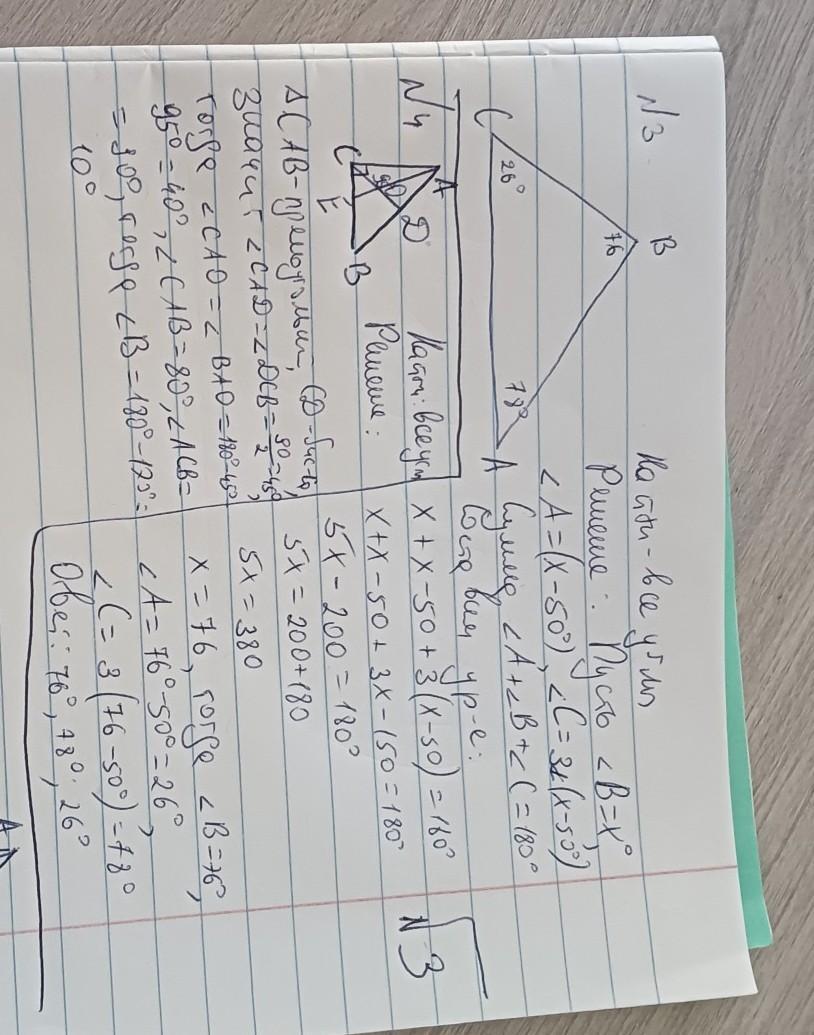 N3.
B
76
C
26°
78°
A
Найти - все углы
Решение: Пусть ∠B=x°
∠A=(x-50°), ∠C=3(x-50°)
Сумма ∠A+∠B+∠C=180°
Составим ур-е:
x+x-50+3(x-50)=180°
x+x-50+3x-150=180°
5x-200=180°
5x=200+180
5x=380
x=76, тогда ∠B=76°,
∠A=76°-50°=26°,
∠C=3(76-50°)=78°
Ответ: 76°, 78°, 26°
N3
N4
A
D
C
E
B
Найти: все уг
Решение:
ΔCAB-прямоугольн, CD-бисс-са,
Значит ∠CAD=∠DCB=90/2=45°,
тогда ∠CAO=∠BAO=180°-45°-
95°=40°, ∠CAB=80°, ∠ACB=
=90°, тогда ∠B=180°-170°=
10°